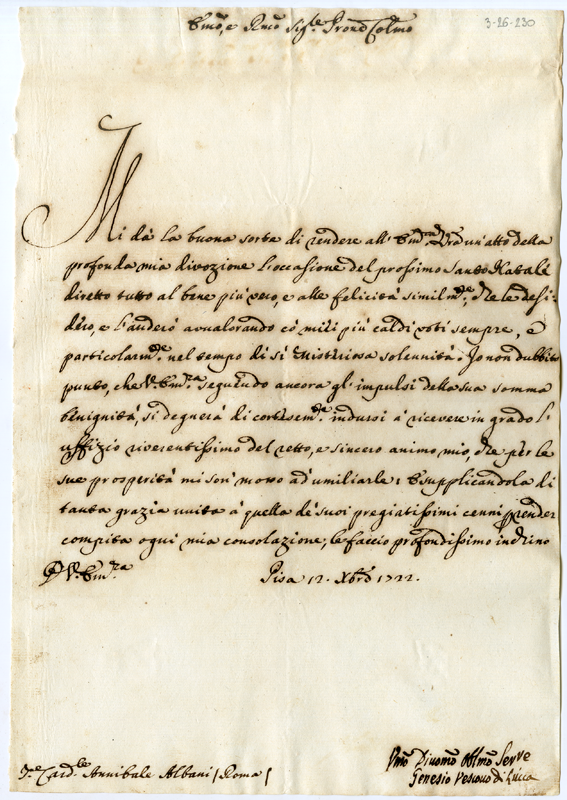 Emo, e Rmo Sigre Prone Colmo
3-26-230
Mi dà la buona sorte di rendere all' Emza Vra un' atto della
profonda mia divozione l'occasione del prossimo Santo Natale
diretto tutto al bene più vero, e alle felicità similmte, che le desi-
dero, e l'anderò avvalorando có miei più caldi voti sempre, e
particolarmte nel tempo di sì misteriosa solennità. Io non dubbito
punto, che V. Emza seguendo ancora gl' impulsi della sua somma
benignità, si degnerà di cortesemte indursi à ricevere in grado l'
uffizio riverentissimo del retto, e sincero animo mio, che per le
sue prosperità mi son' mosso ad' umiliarle: E supplicandola di
tanta grazia unita à quella de' suoi pregiatissimi cenni p render
compita ogni mia consolazione, le faccio profondissimo inchino
D V. Emza
Pisa 12. Xbre 1722.
Sre Cardle Annibale Albani / Roma /
Umo Divomo Obbmo Serve
Genesio Vescovo di Lucca